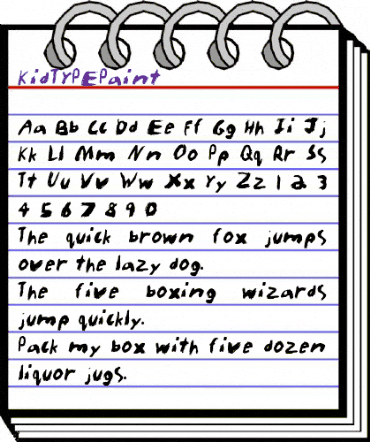 KidTYPEPaint
Aa Bb Cc Dd Ee Ff Gg Hh Ii Jj
Kk Ll Mm Nn Oo Pp Qq Rr Ss
Tt Uu Vv Ww Xx Yy Zz 1 2 3
4 5 6 7 8 9 0
The quick brown fox jumps
over the lazy dog.
The five boxing wizards
jump quickly.
Pack my box with five dozen
liquor jugs.